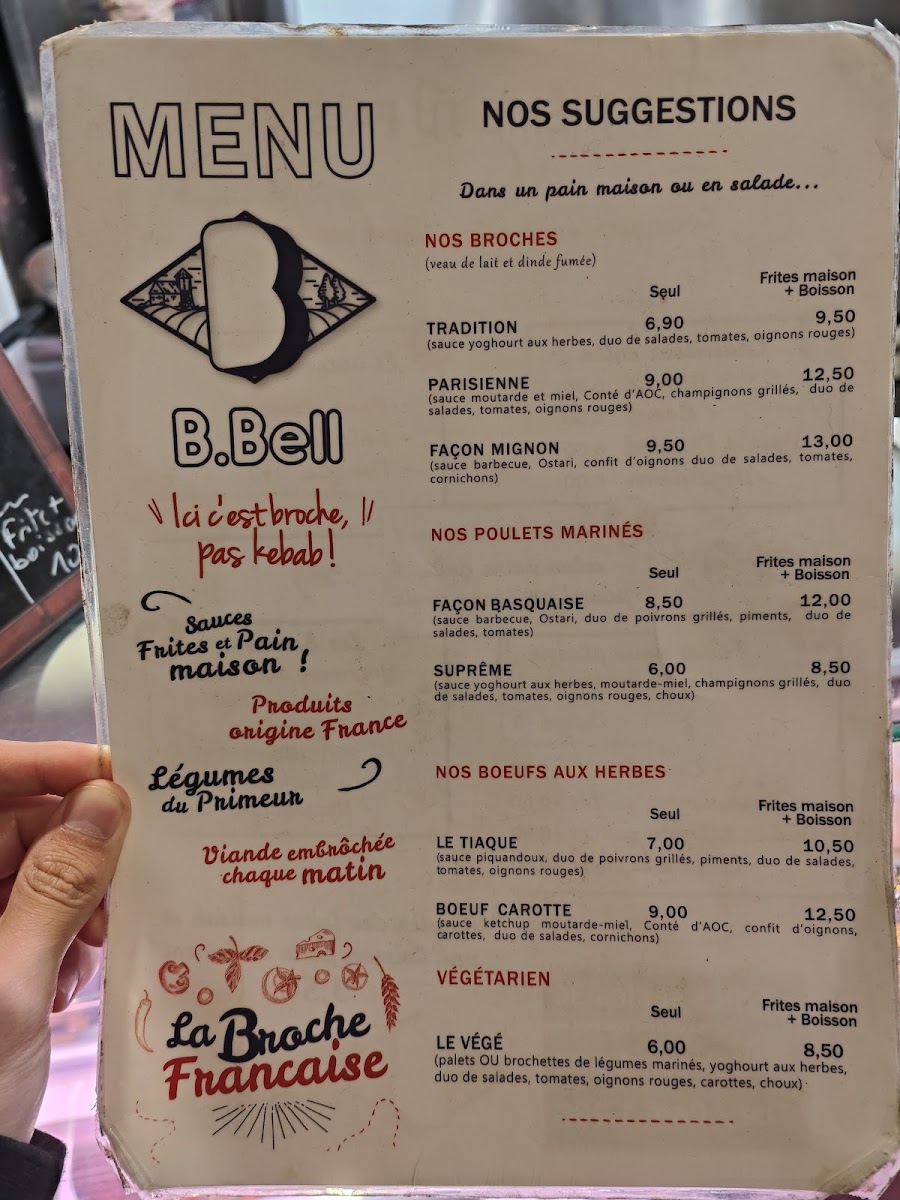 MENU
B
B.Bell
Ici c'est broche,
pas kebab!
Sauces
Frites et Pain
maison !
Produits
origine France
Légumes
du Primeur
Viande embrôchée
chaque matin
La Broche
Francaise
NOS SUGGESTIONS
Dans un pain maison ou en salade...
NOS BROCHES
(veau de lait et dinde fumée)
Seul Frites maison
+ Boisson
TRADITION 6,90 9,50
(sauce yoghourt aux herbes, duo de salades, tomates, oignons rouges)
PARISIENNE 9,00 12,50
(sauce moutarde et miel, Conté d'AOC, champignons grillés, duo de
salades, tomates, oignons rouges)
FAÇON MIGNON 9,50 13,00
(sauce barbecue, Ostari, confit d'oignons duo de salades, tomates,
cornichons)
NOS POULETS MARINÉS
Seul Frites maison
+ Boisson
FAÇON BASQUAISE 8,50 12,00
(sauce barbecue, Ostari, duo de poivrons grillés, piments, duo de
salades, tomates)
SUPRÊME 6,00 8,50
(sauce yoghourt aux herbes, moutarde-miel, champignons grillés, duo
de salades, tomates, oignons rouges, choux)
NOS BOEUFS AUX HERBES
Seul Frites maison
+ Boisson
LE TIAQUE 7,00 10,50
(sauce piquandoux, duo de poivrons grillés, piments, duo de salades,
tomates, oignons rouges)
BOEUF CAROTTE 9,00 12,50
(sauce ketchup moutarde-miel, Conté d'AOC, confit d'oignons,
carottes, duo de salades, cornichons)
VÉGÉTARIEN
Seul Frites maison
+ Boisson
LE VÉGÉ 6,00 8,50
(palets OU brochettes de légumes marinés, yoghourt aux herbes,
duo de salades, tomates, oignons rouges, carottes, choux)